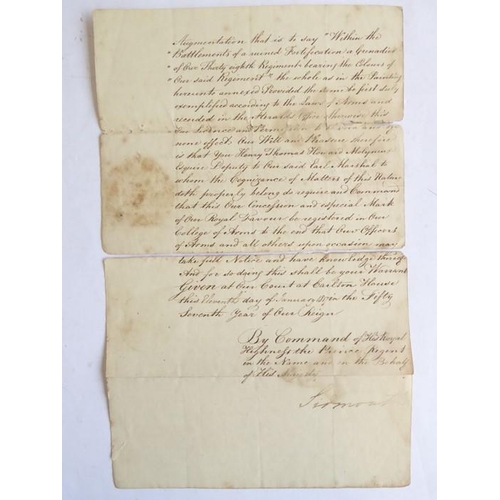 Augmentation that is to say "Within the
"Battlements of a ruined Fortification a Grenadier
"of Our Thirty eighth Regiment bearing the Colours of
Our said Regiment" the whole as in the Painting
hereunto annexed Provided the same be first duly
exemplified according to the Laws of Arms and
recorded in the Heralds Office otherwise this
Our and Permission to be and
none effect. Our Will and Pleasure therefore
is that You Henry Thomas Howard Molyneux
Esquire Deputy to Our said Earl Marshal to
whom the Cognizance of Matters of this Nature
doth properly belong do require and Command
that this Our Concession and especial Mark
of Our Royal Favour be registered in Our
College of Arms to the end that Our Officers
of Arms and all others upon occasion may
take full Notice and have knowledge thereof
And for so doing this shall be your Warrant
Given at Our Court at Carlton House
this Seventh day of January in the Fifty
Seventh Year of Our Reign
By Command of His Royal
Highness the Prince Regent
in the Name and on the Behalf
of His Majesty